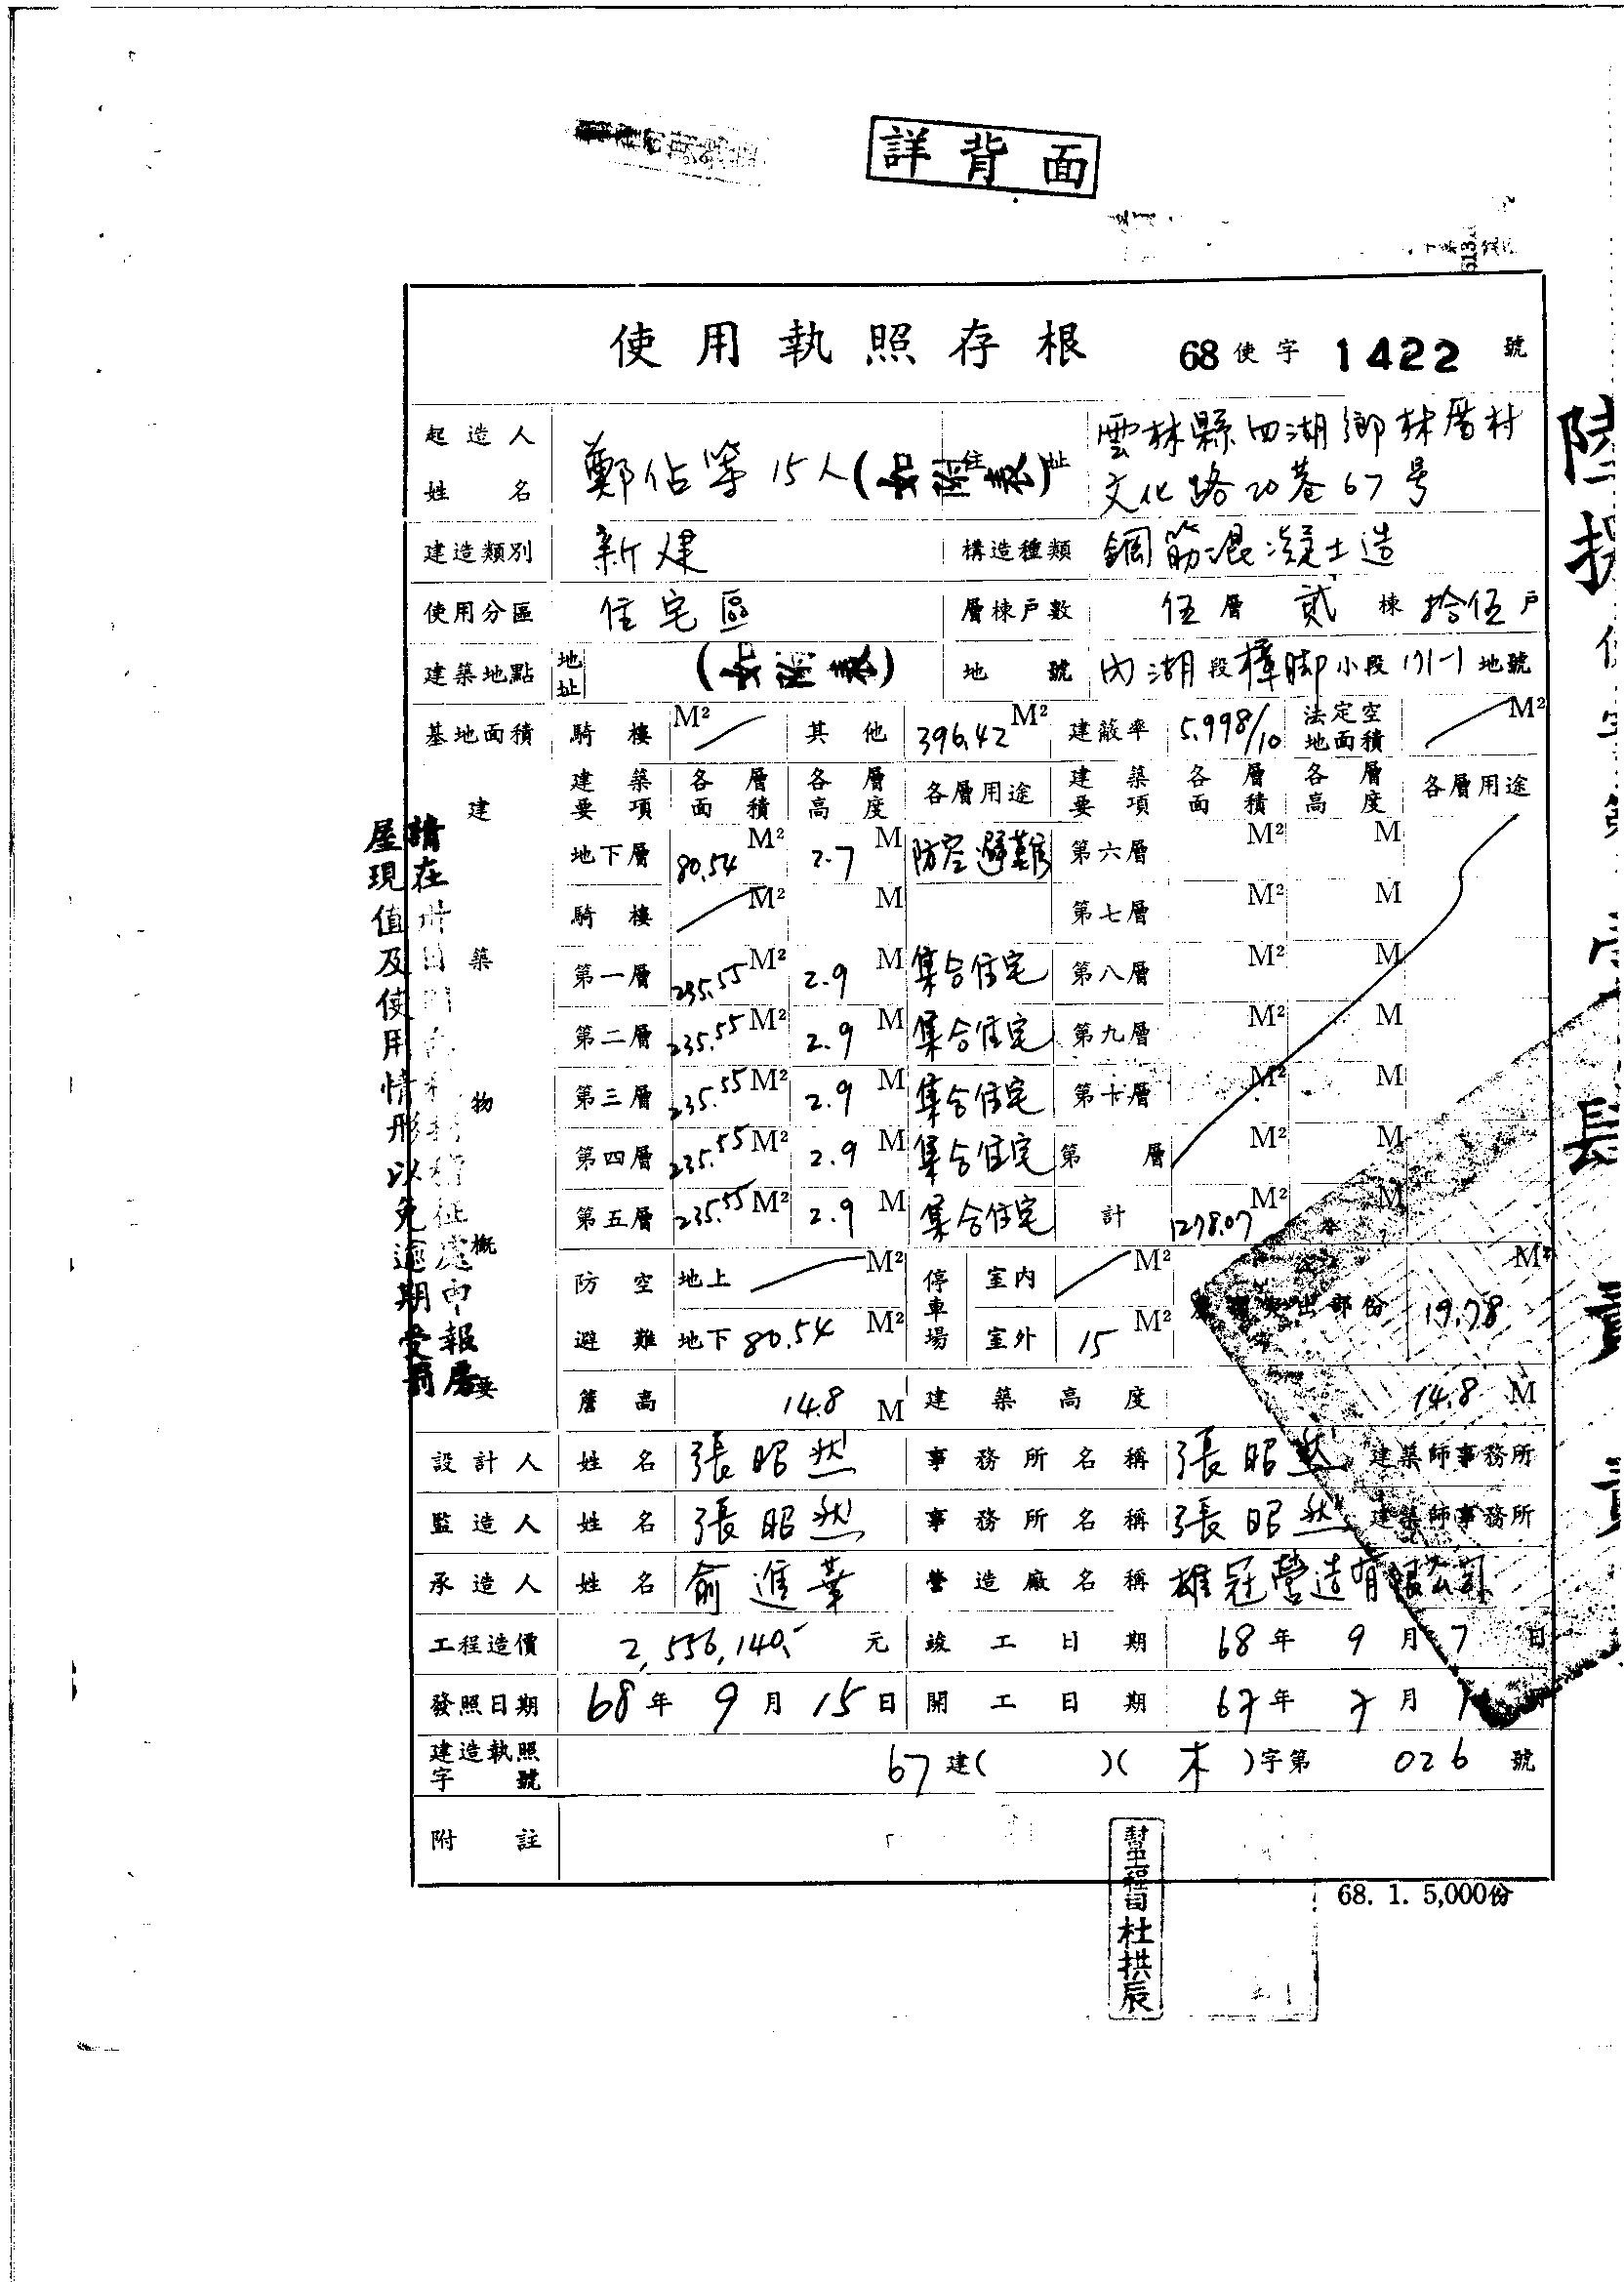 詳背面
使用執照存根 68使字1422號
起造人姓名 鄭佔等15人 住址 雲林縣四湖鄉林厝村文化路20巷67号
建造類別 新建 構造種類 鋼筋混凝土造
使用分區 住宅區 層棟戶數 伍層貳棟拾伍戶
建築地點 地址 地號 內湖段樟脚小段171-1地號
基地面積 騎樓 M² 其他 396.42 M² 建蔽率 5.998/10 法定空地面積 M²
建築物概要
建築要項 各層面積 各層高度 各層用途 建築要項 各層面積 各層高度 各層用途
地下層 80.54 M² 2.7 M 防空避難 第六層 M² M
騎樓 M² M 第七層 M² M
第一層 235.55 M² 2.9 M 集合住宅 第八層 M² M
第二層 235.55 M² 2.9 M 集合住宅 第九層 M² M
第三層 235.55 M² 2.9 M 集合住宅 第十層 M² M
第四層 235.55 M² 2.9 M 集合住宅 第 層 M² M
第五層 235.55 M² 2.9 M 集合住宅 計 1278.07 M² M
防空避難 地上 M² 停車場 室內 M²
地下 80.54 M² 室外 15 M² 突出部份 19.78 M²
簷高 14.8 M 建築高度 14.8 M
設計人 姓名 張昭然 事務所名稱 張昭然建築師事務所
監造人 姓名 張昭然 事務所名稱 張昭然建築師事務所
承造人 姓名 俞進華 營造廠名稱 雄冠營造有限公司
工程造價 2,556,140.- 元 竣工日期 68年9月7日
發照日期 68年9月15日 開工日期 67年7月1
建造執照字號 67建( )(木)字第026號
附註
68. 1. 5,000份
幫工程司杜拱辰
屋現值及使用情形以免逾期受罰